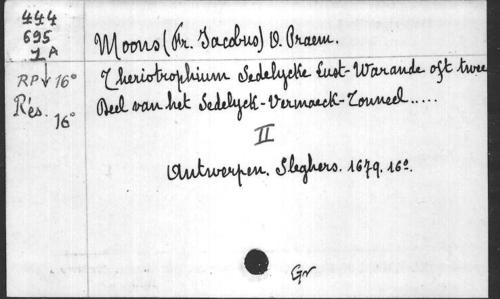 444
695
1 A
RP 16°
Rés. 16°
Moons (Fr. Jacobus) O. Praem.
Theriotrophium Sedelycke Lust-Warande oft twee
Deel van het Sedelyck-Vermaeck-Touneel.....
II
Antwerpen. Sleghers. 1679. 16°.
Gr